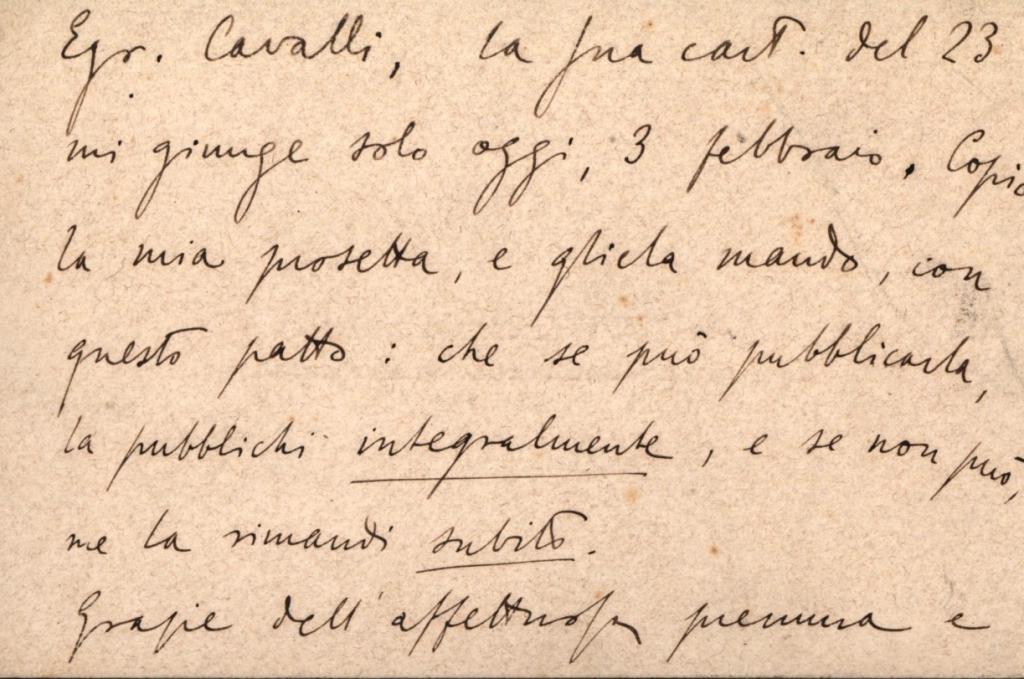 Egr. Cavalli, la Sua cart. del 23
mi giunge solo oggi, 3 febbraio. Copio
la mia prosetta, e gliela mando, con
questo patto: che se può pubblicarla,
la pubblichi integralmente, e se non può,
me la rimandi subito.
Grazie dell'affettuosa premura e